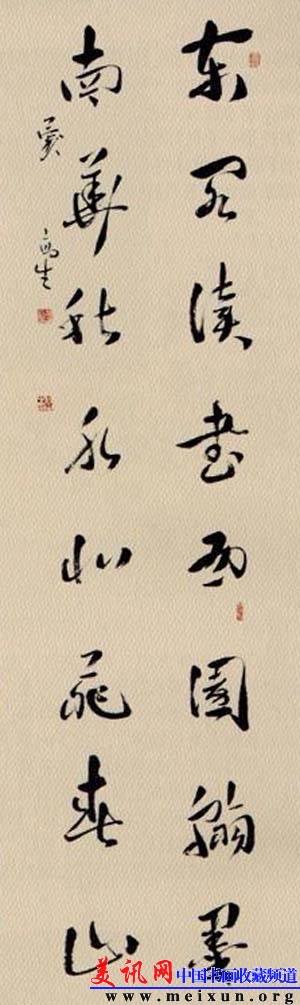 东阁读书西园翰墨
南华秋水北苑春山
美讯网 中国书画收藏频道
www.meixun.org